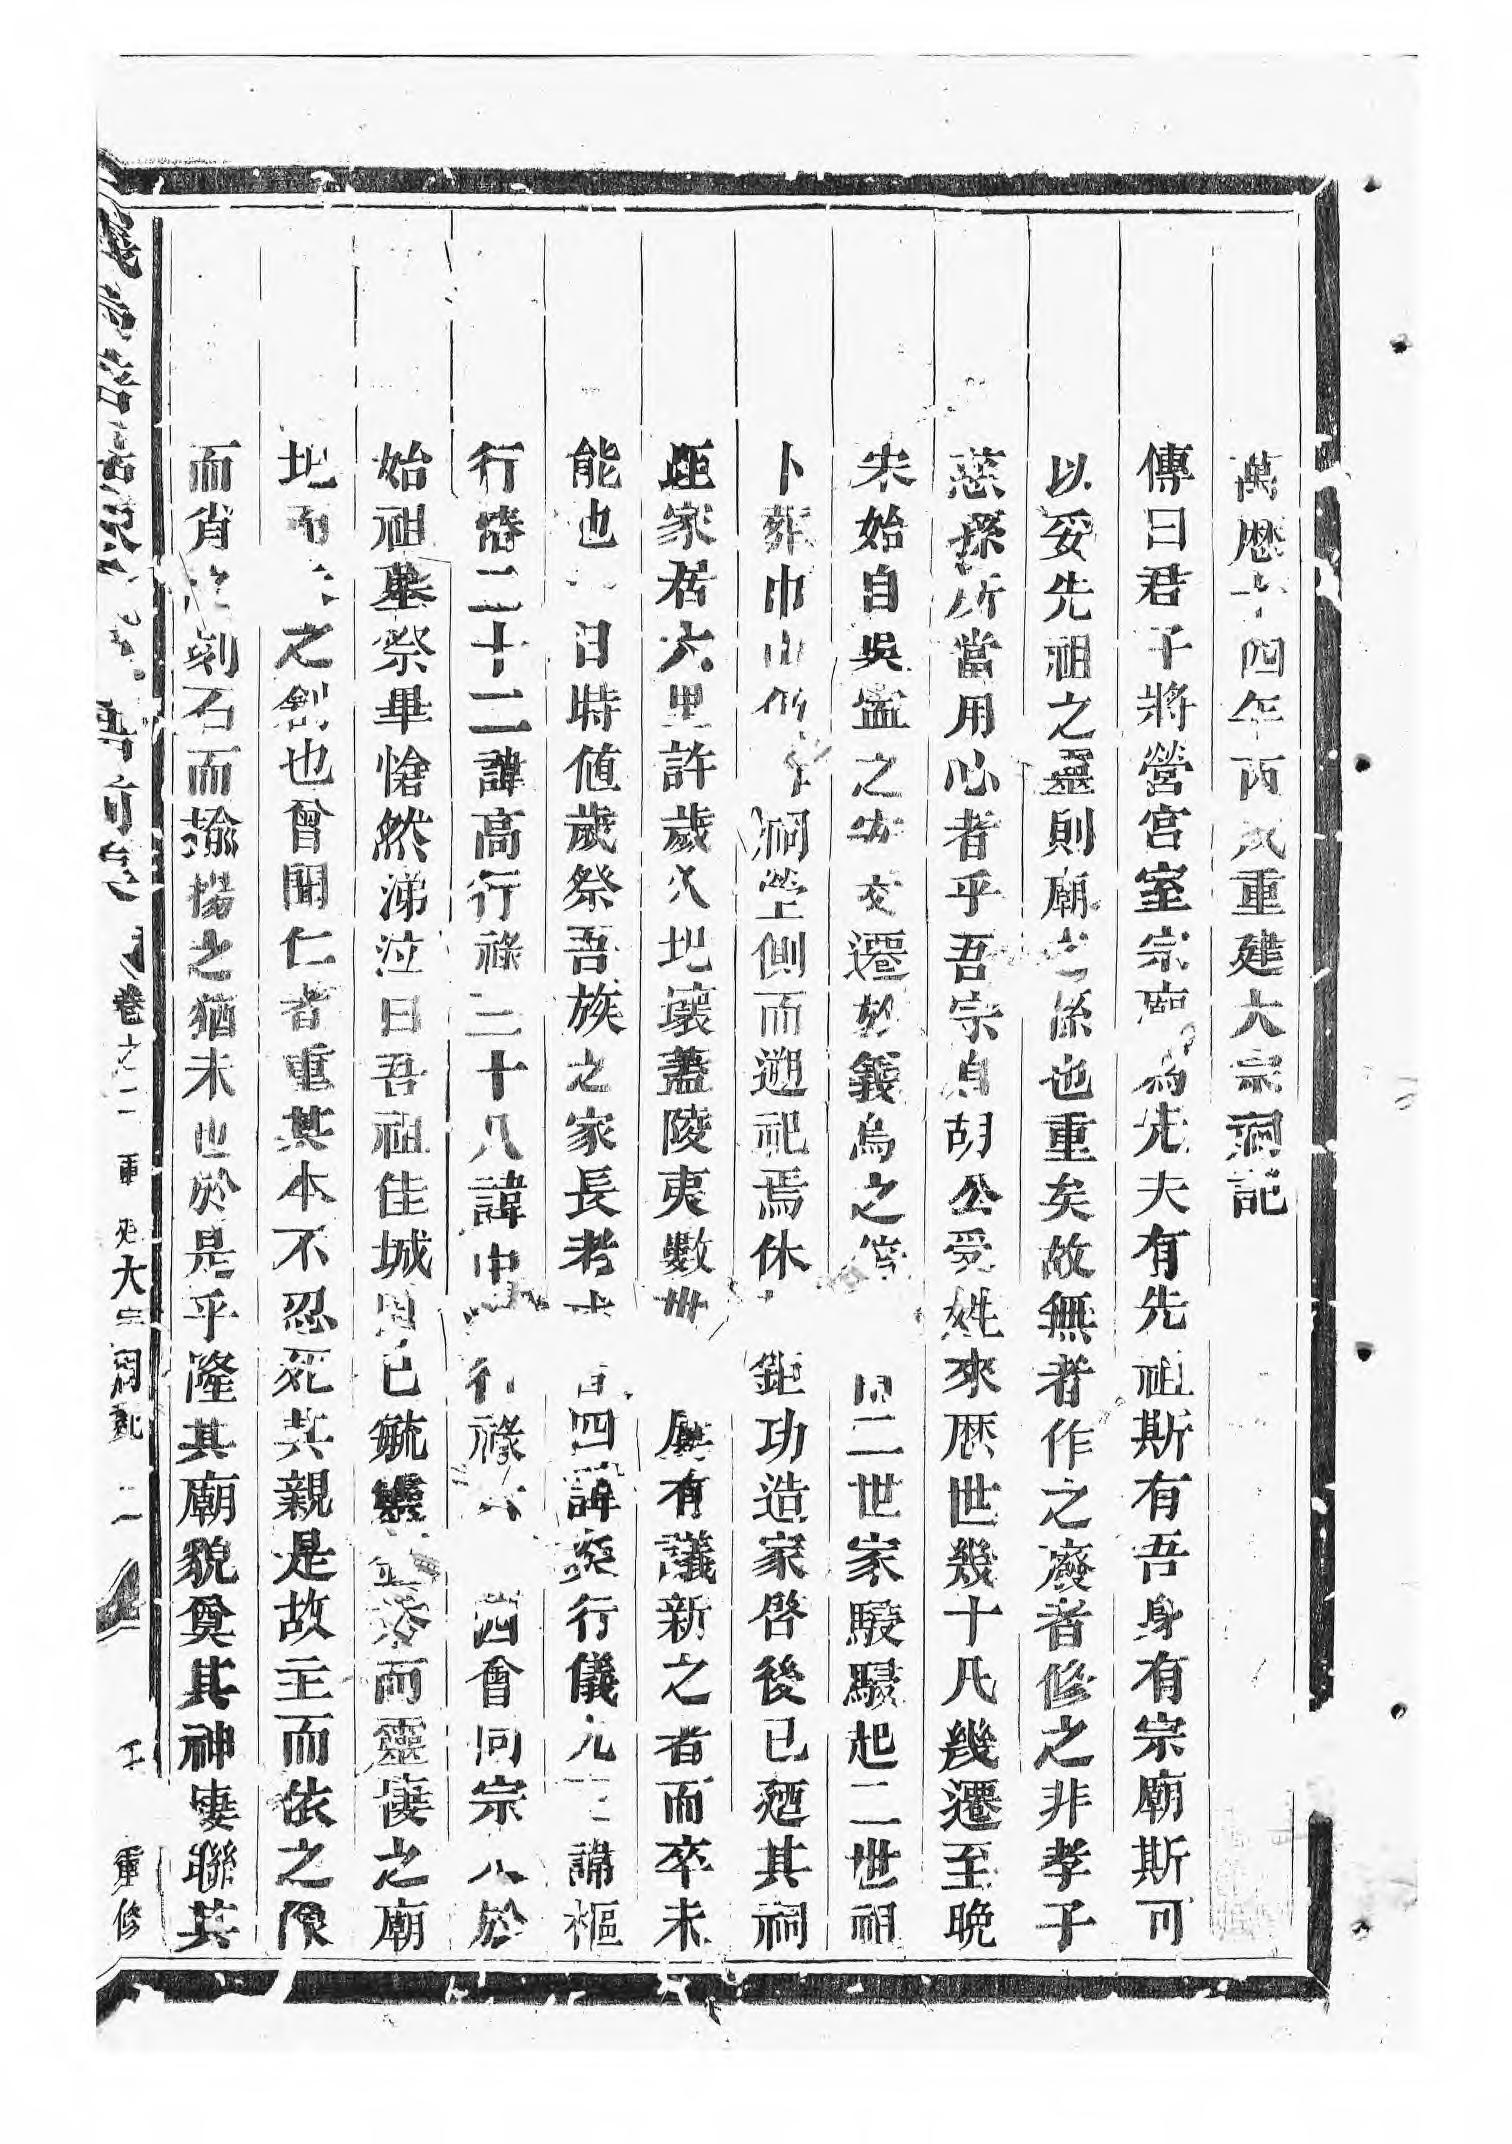 萬厯十四年丙戌重建大宗祠記
傳曰君子將營宮室宗廟為先夫有先祖斯有吾身有宗廟斯可
以妥先祖之靈則廟之係也重矣故無者作之廢者修之非孝子
慈孫所當用心者乎吾宗自胡公受姓來厯世幾十凡幾遷至晚
宋始自吳寧之 交遷於義烏之 二世家駸駸起二世祖
卜葬巾山 祠塋側而遡祀焉休 鉅功造家啓後已廼其祠
距家居六里許歲久圯壞蓋陵夷數 屢有議新之者而卒未
能也 日時值歲祭吾族之家長孝 四諱 行儀九 諱樞
行 二十二諱高行祿二十八諱 行祿 四會同宗人於
始祖墓祭畢愴然涕泣曰吾祖佳城 已毓 而靈悽之廟
圯而 之創也曾聞仁者重其本不忍死其親是故主而依之像
而肖 刻石而揄揚之猶未也於是乎隆其廟貌奠其神悽聯其
卷之二 大宗祠記 二 重修